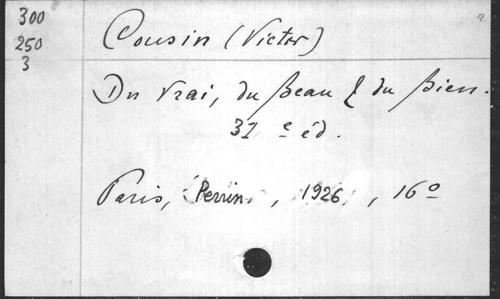 300
250
3
Cousin (Victor)
Du Vrai, du Beau & du Bien.
31 e éd.
Paris, Perrin, 1926, 16º